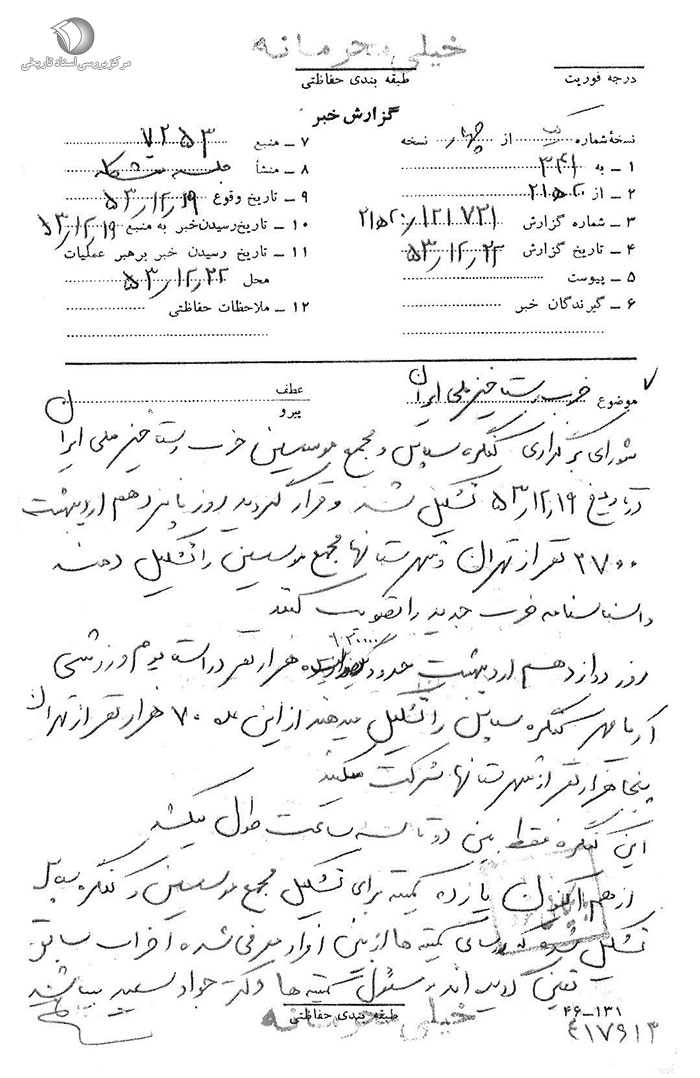 مرکز بررسی اسناد تاریخی
خیلی محرمانه
درجه فوریت
طبقه بندی حفاظتی
گزارش خبر
نسخهٔ شماره یک از چهار نسخه
۱ – به ۳۴۱
۲ – از ۲۰ﻫ۲۱
۳ – شماره گزارش ۱۲۱۷۲۱/۲۰ﻫ۲۱
۴ – تاریخ گزارش ۵۳/۱۲/۲۲
۵ – پیوست
۶ – گیرندگان خبر
۷ – منبع ۷۲۵۳
۸ – منشأ جلسه متشکله
۹ – تاریخ وقوع ۵۳/۱۲/۱۹
۱۰ – تاریخ رسیدن خبر به منبع ۵۳/۱۲/۱۹
۱۱ – تاریخ رسیدن خبر برهبر عملیات
محل ۵۳/۱۲/۲۲
۱۲ – ملاحظات حفاظتی
موضوع حزب رستاخیز ملی ایران
عطف
پیرو
شورای برگزاری کنگره سپاس و مجمع موسسین حزب رستاخیز ملی ایران
در تاریخ ۵۳/۱۲/۱۹ تشکیل شد و قرار گردید روز پانزدهم اردیبهشت
۲۷۰۰ نفر از تهران و شهرستانها مجمع موسسین را تشکیل دهند
و اساسنامه حزب جدید را تصویب کنند
روز دوازدهم اردیبهشت حدود ۱۲۰۰۰۰ هزار نفر در استادیوم ورزشی
آریامهر کنگره سپاس را تشکیل میدهند از این عده ۷۰ هزار نفر از تهران
پنجاه هزار نفر از شهرستانها شرکت میکنند
این کنگره فقط بین دو تا سه ساعت طول میکشد
از هم اکنون یازده کمیته برای تشکیل مجمع موسسین و کنگره سپاس
تشکیل شده که روسای کمیته ها از بین افراد معرفی شده احزاب سابق
تعیین گردیده اند و مسئول کمیته ها دکتر جواد سعید میباشند
طبقه بندی حفاظتی
خیلی محرمانه
۴۶–۱۳۱
۴۱۷۹۱۳